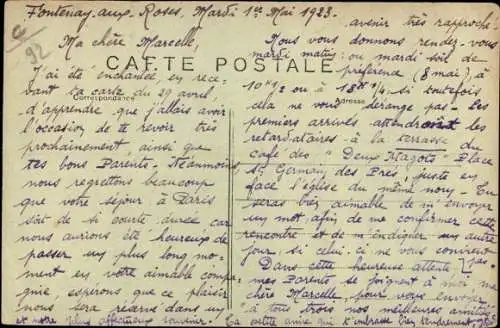 Fontenay-aux-Roses, Mardi 1er Mai 1923.
Ma chère Marcelle,
CARTE POSTALE
Correspondance
Adresse
J'ai été enchantée, en rece-
vant ta carte du 29 avril,
d'apprendre que j'allais avoir
l'occasion de te revoir très
prochainement, ainsi que
tes bons Parents. Néanmoins
nous regrettons beaucoup
que votre séjour à Paris
soit de si courte durée car
nous aurions été heureux de
passer un plus long mo-
ment en votre aimable compa-
gnie, espérons que ce plaisir
nous sera réservé dans un
avenir très rapproché.
Nous vous donnons rendez-vous
mardi matin ou mardi soir de
préférence (8 mai), à
10h 1/2 ou à 18h 1/4, si toutefois
cela ne vous dérange pas. Les
premiers arrivés attendront les
retardataires à la terrasse du
café des "Deux Magots" Place
St Germain des Prés, juste en
face l'église du même nom. Tu
seras bien aimable de m'envoyer
un mot afin de me confirmer cette
rencontre et de m'indiquer un autre
jour si celui-ci ne vous convient pas.
Dans cette heureuse attente,
mes Parents se joignent à moi, ma
chère Marcelle, pour vous envoyer
à tous trois nos meilleures amitiés
et notre plus affectueux souvenir. Ta petite amie qui t'embrasse bien tendrement,